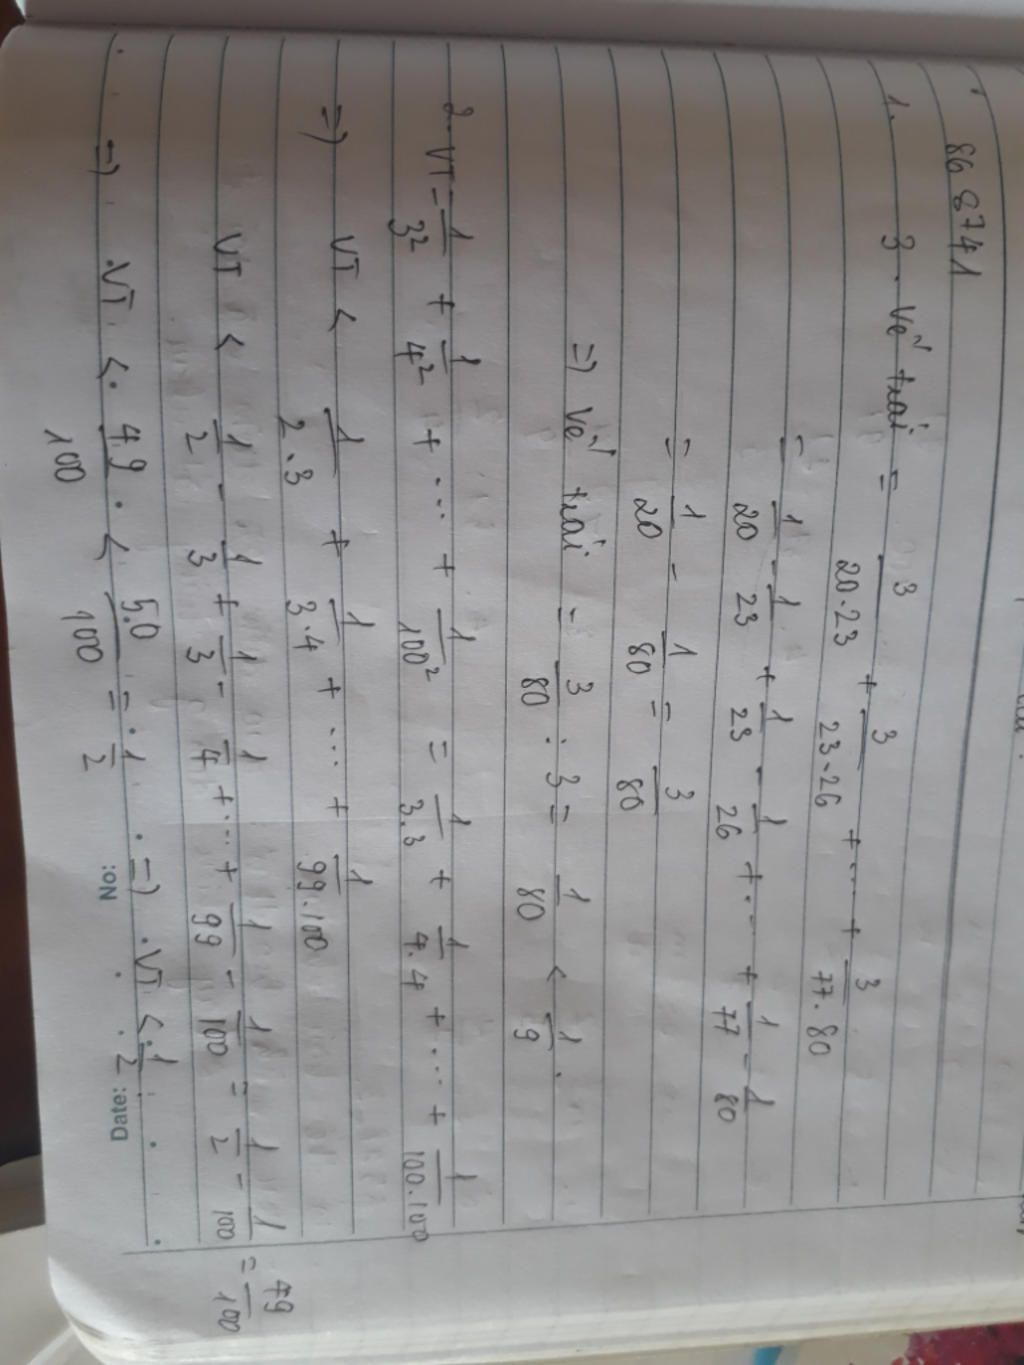 86 8741
1. 3. Vế trái = 3/20.23 + 3/23.26 + ... + 3/77.80
= 1/20 - 1/23 + 1/23 - 1/26 + ... + 1/77 - 1/80
= 1/20 - 1/80 = 3/80
=) Vế trái = 3/80 : 3 = 1/80 < 1/9.
2. VT = 1/3² + 1/4² + ... + 1/100² = 1/3.3 + 1/4.4 + ... + 1/100.100
=) VT < 1/2.3 + 1/3.4 + ... + 1/99.100
VT < 1/2 - 1/3 + 1/3 - 1/4 + ... + 1/99 - 1/100 = 1/2 - 1/100 = 49/100
=) VT < 49/100 < 50/100 = 1/2 =) VT < 1/2
No: Date: